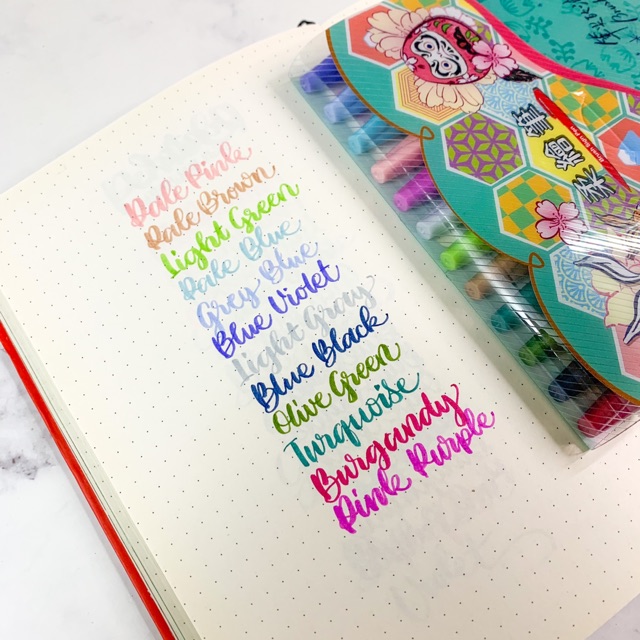 Pale Pink
Pale Brown
Light Green
Pale Blue
Grey Blue
Blue Violet
Light Gray
Blue Black
Olive Green
Turquoise
Burgundy
Pink Purple